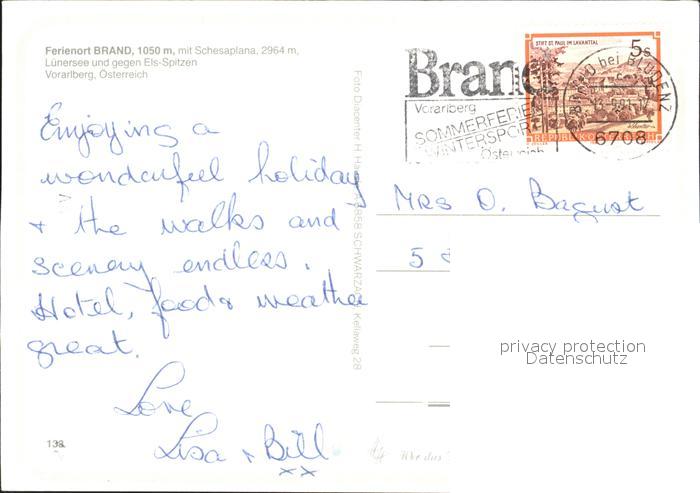 Ferienort BRAND, 1050 m, mit Schesaplana, 2964 m,
Lünersee und gegen Els-Spitzen
Vorarlberg, Österreich
Enjoying a
wonderful holiday
+ the walks and
scenery endless.
Hotel, food & weather
great.
Love
Lisa + Bill
xx
138
Foto Discenter H. 6858 SCHWARZACH Kellaweg 28
Brand
Vorarlberg
SOMMERFERIEN
WINTERSPORT
Österreich
STIFT ST. PAUL IM LAVANTTAL
5s
REPUBLIK ÖSTERREICH
BRAND bei BLUDENZ
6708
Mrs D. Bagust
5
privacy protection
Datenschutz